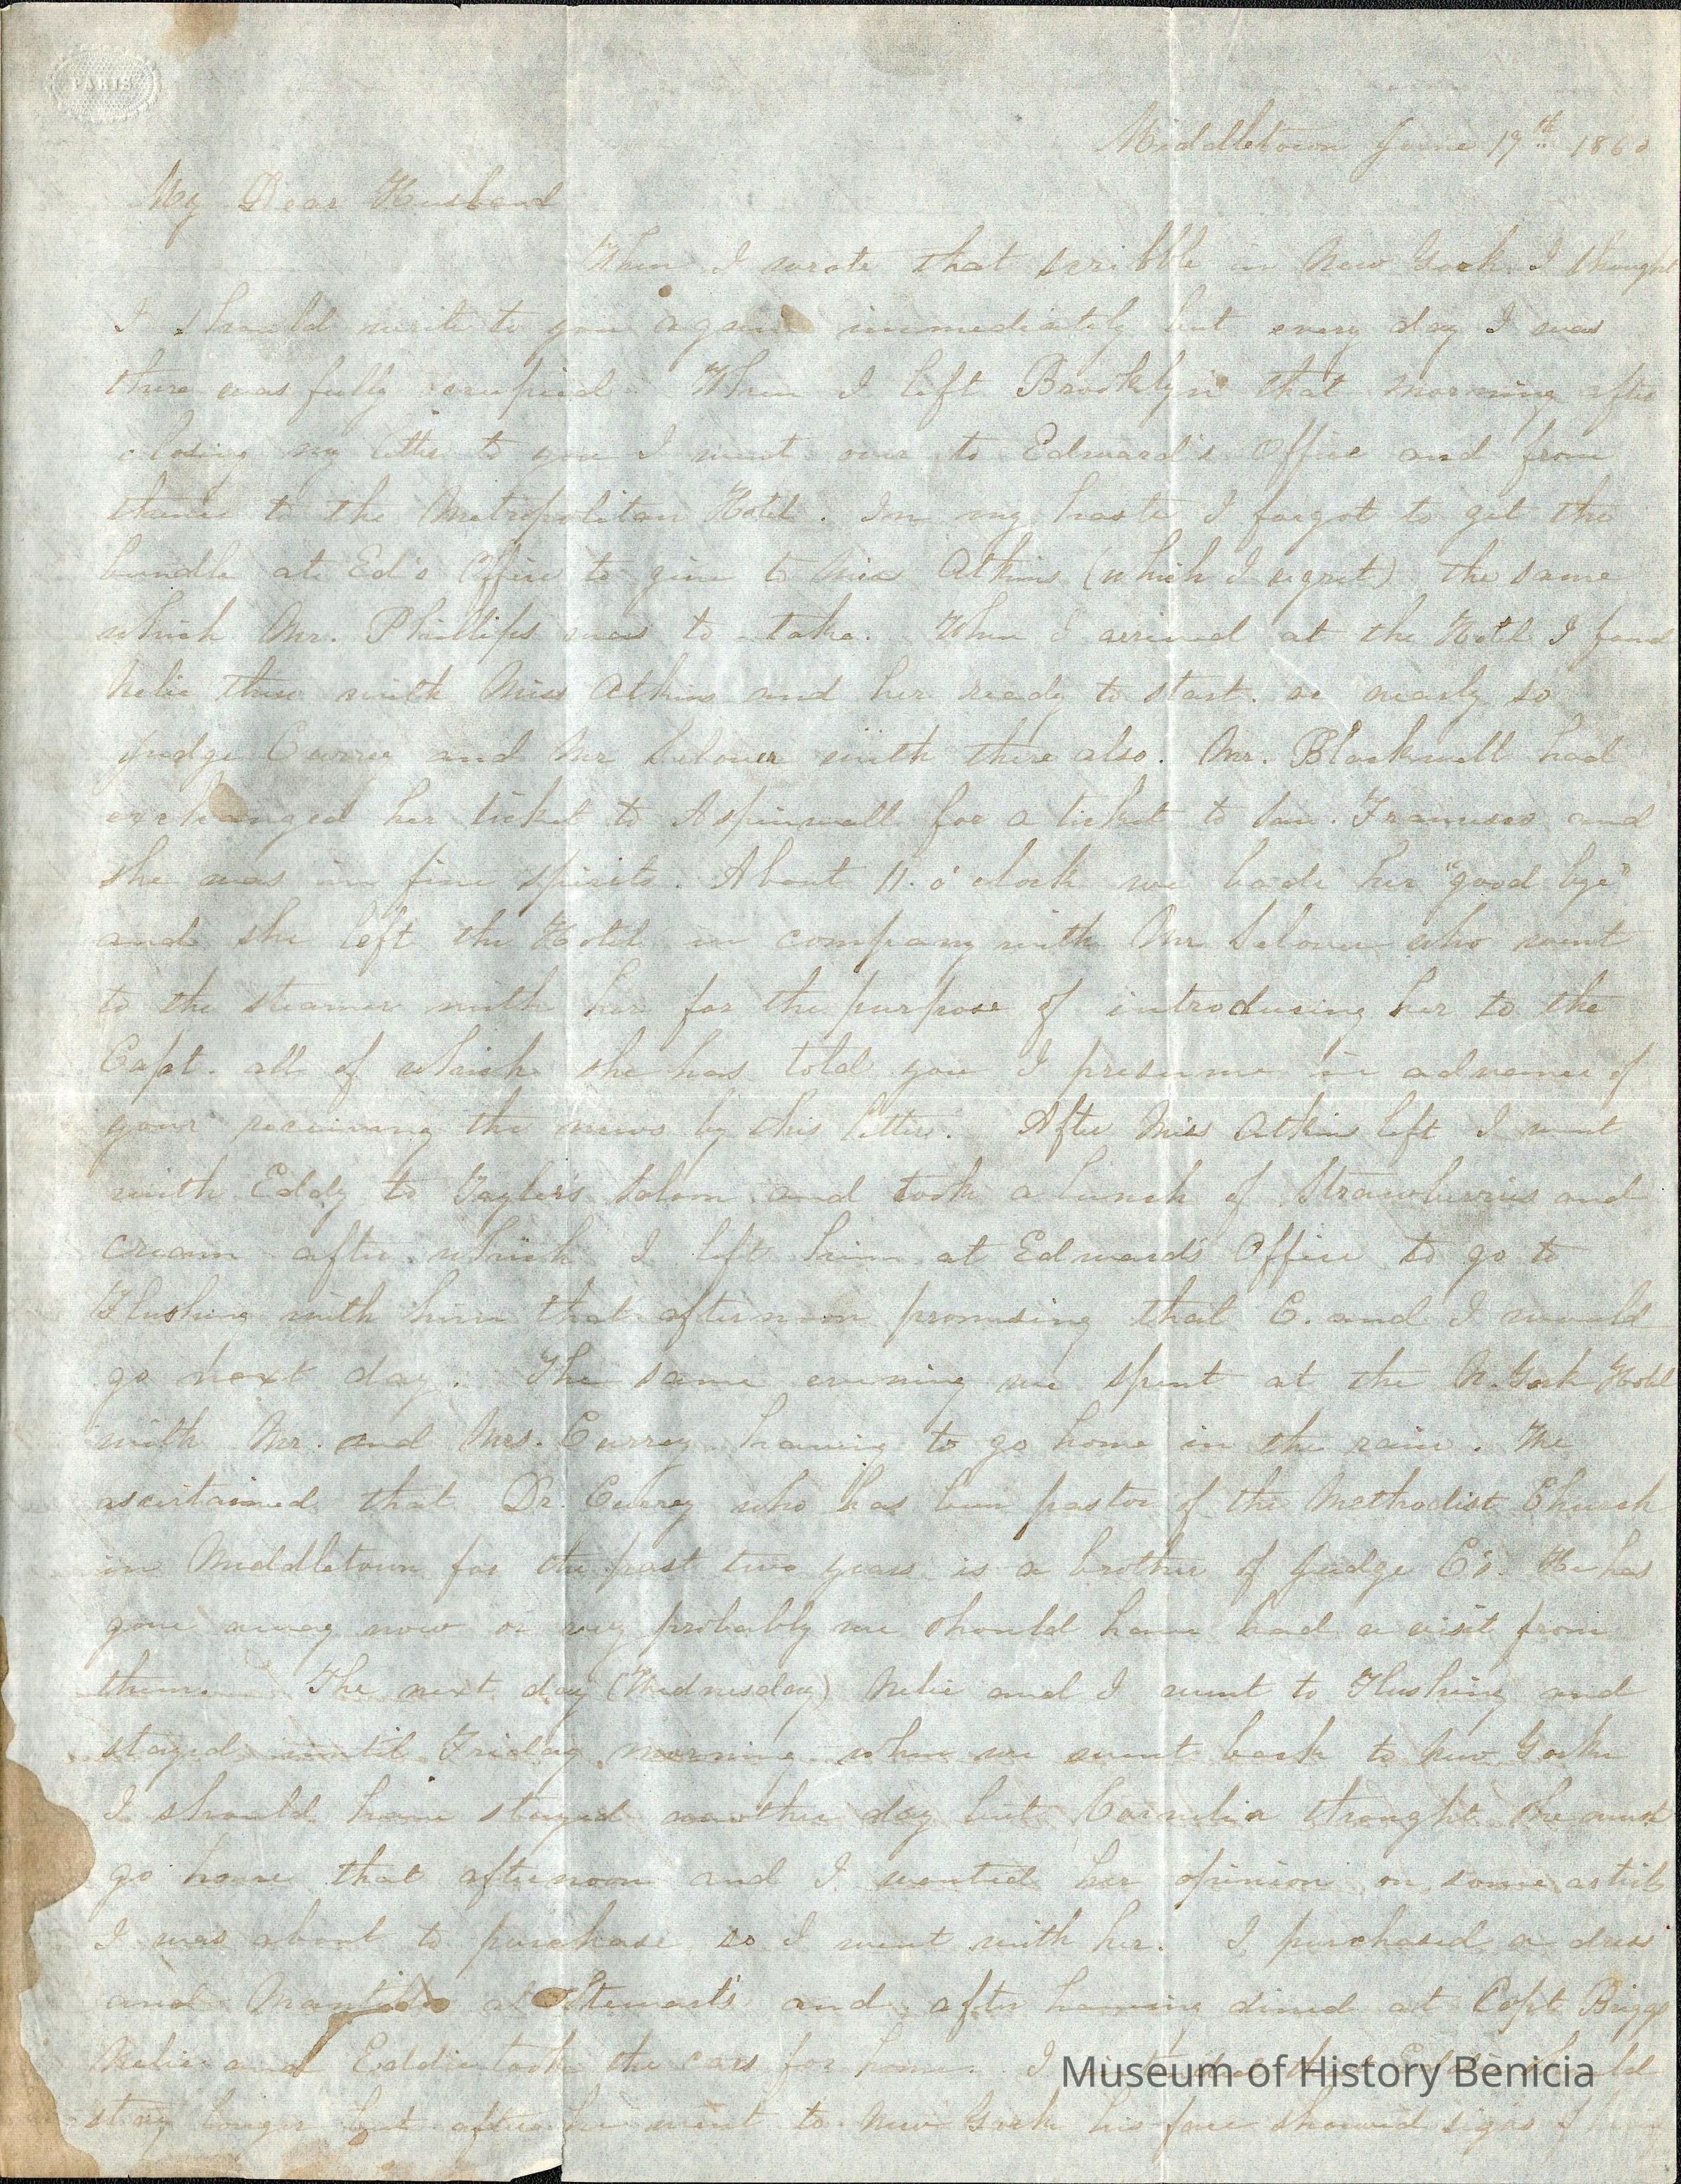 PARIS
Middletown June 17th 1860
My Dear Husband
When I wrote that scribble in New York I thought
I should write to you again immediately but every day I was
there was fully occupied. When I left Brooklyn that morning after
closing my letter to you I went over to Edward's Office and from
thence to the Metropolitan Hotel. In my haste I forgot to get the
bundle at Ed's Office to give to Miss Atkins (which I regret) the same
which Mr. Phillips was to take. When I arrived at the Hotel I found
Nelie there with Miss Atkins and her ready to start. or nearly so
Judge Currey and Mr Selover with there also. Mr. Blackwell had
exchanged her ticket to Aspinwall for a ticket to San. Francisco and
she was in fine spirits. About 11. o'clock we bade her "good bye"
and she left the Hotel in company with Mr Selover who went
to the steamer with her for the purpose of introducing her to the
Capt. all of which she has told you I presume in advance of
your receiving the news by this letter. After Miss Atkins left I went
with Eddy to Taylor's Saloon and took a lunch of Strawberries and
cream after which I left him at Edward's Office to go to
Flushing with him that afternoon promising that C. and I would
go next day. The same evening we spent at the N. York Hotel
with Mr. and Mrs. Currey having to go home in the rain. We
ascertained that Dr. Currey who has been pastor of the Methodist Church
in Middletown for the past two years is a brother of Judge C's. He has
gone away now or very probably we should have had a visit from
them. The next day (Wednesday) Nelie and I went to Flushing and
stayed until Friday morning when we went back to New York
I should have stayed another day but Cornelia thought she must
go home that afternoon and I wanted her opinion on some articles
I was about to purchase so I went with her. I purchased a dress
and Mantilla at Stewart's and after having dined at Capt Briggs
Nelie and Eddie took the cars for home. I
stay longer but after he went to New York his face showed signs of
Museum of History Benicia